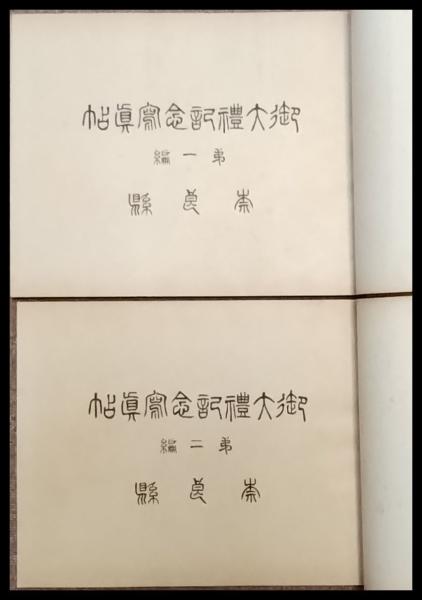 御大禮記念寫眞帖
第一編
奈良縣
御大禮記念寫眞帖
第二編
奈良縣